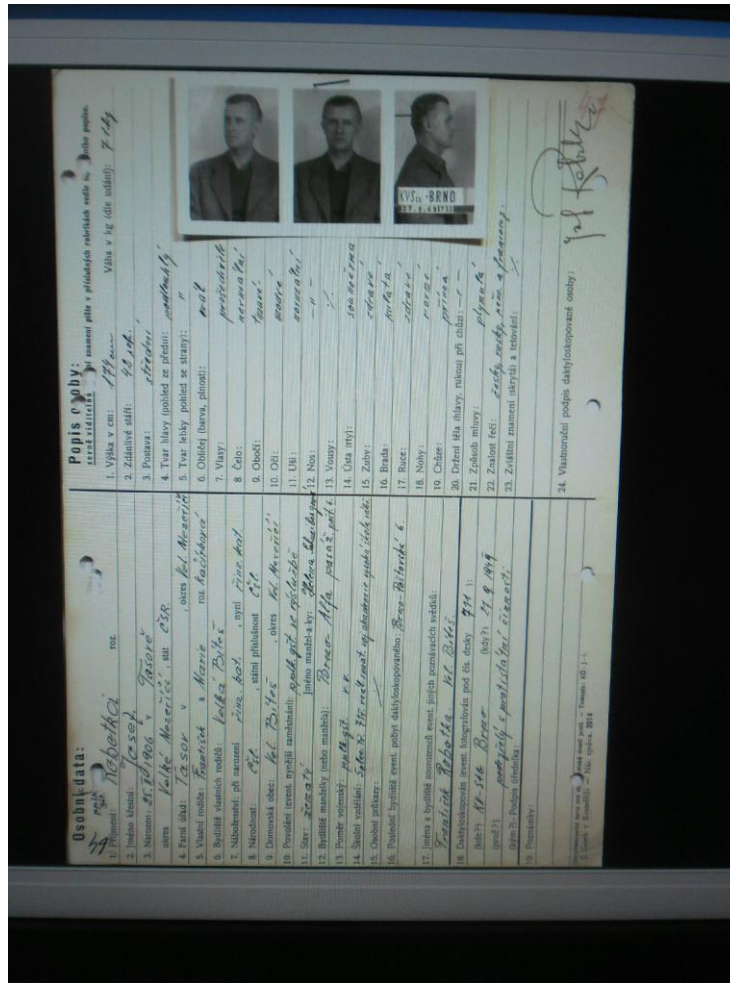 Osobní data:
1. Příjmení: Robotka roz.
2. Jméno křestní: Josef
3. Narozen: 25.IV 1906 v Tasově
okres Velké Meziříčí, stát ČSR.
4. Farní úřad: Tasov v , okres Vel. Meziříčí
5. Vlastní rodiče: František a Marie roz.
6. Bydliště vlastních rodičů: Velká Biteš
7. Náboženství: při narození řím. kat. , nyní řím. kat.
8. Národnost: čsl. , státní příslušnost čsl.
9. Domovská obec: Vel. Biteš , okres Vel. Meziříčí
10. Povolání (event. nynější zaměstnání): pplk. gšt. ve výslužbě
11. Stav: ženatý Jméno manžel-a-ky: Helena
12. Bydliště manželky (nebo manžela): Brno- Alfa pasáž
13. Poměr vojenský: pplk. gšt. v. v.
14. Školní vzdělání:
15. Osobní průkazy:
16. Poslední bydliště event. pobyt daktyloskopovaného: Brno- 6.
17. Jména a bydliště sourozenců event. jiných poznávacích svědků:
František Robotka. Vel. Biteš.
18. Daktyloskopován (event. fotografován pod čís. desky 971 ):
(kde?) KV StB Brno (kdy?) 27. 9. 1949
(proč?) podezřelý s protistátní činnosti
(kým?) Podpis úředníka:
19. Poznámky:
Popis osoby:
1. Výška v cm: 174 cm Váha v kg (dle udání): 71 kg
2. Zdánlivé stáří: 42 rok.
3. Postava: střední
4. Tvar hlavy (pohled ze předu): podlouhlý
5. Tvar lebky (pohled se strany): "
6. Obličej (barva, plnost): ovál
7. Vlasy: prošedivělé
8. Čelo: normální
9. Obočí: tmavé
10. Oči: modré
11. Uši: normální
12. Nos: - " -
13. Vousy:
14. Ústa (rty): souměrná
15. Zuby: zdravé
16. Brada: kulatá
17. Ruce: zdravé
18. Nohy: rovné
19. Chůze: přímá
20. Držení těla (hlavy, rukou) při chůzi: - " -
21. Způsob mluvy: plynulá
22. Znalost řečí: česky, rusky, něm. a francouz.
23. Zvláštní znamení (skrytá) a tetování:
24. Vlastnoruční podpis daktyloskopované osoby:
KVStb -BRNO